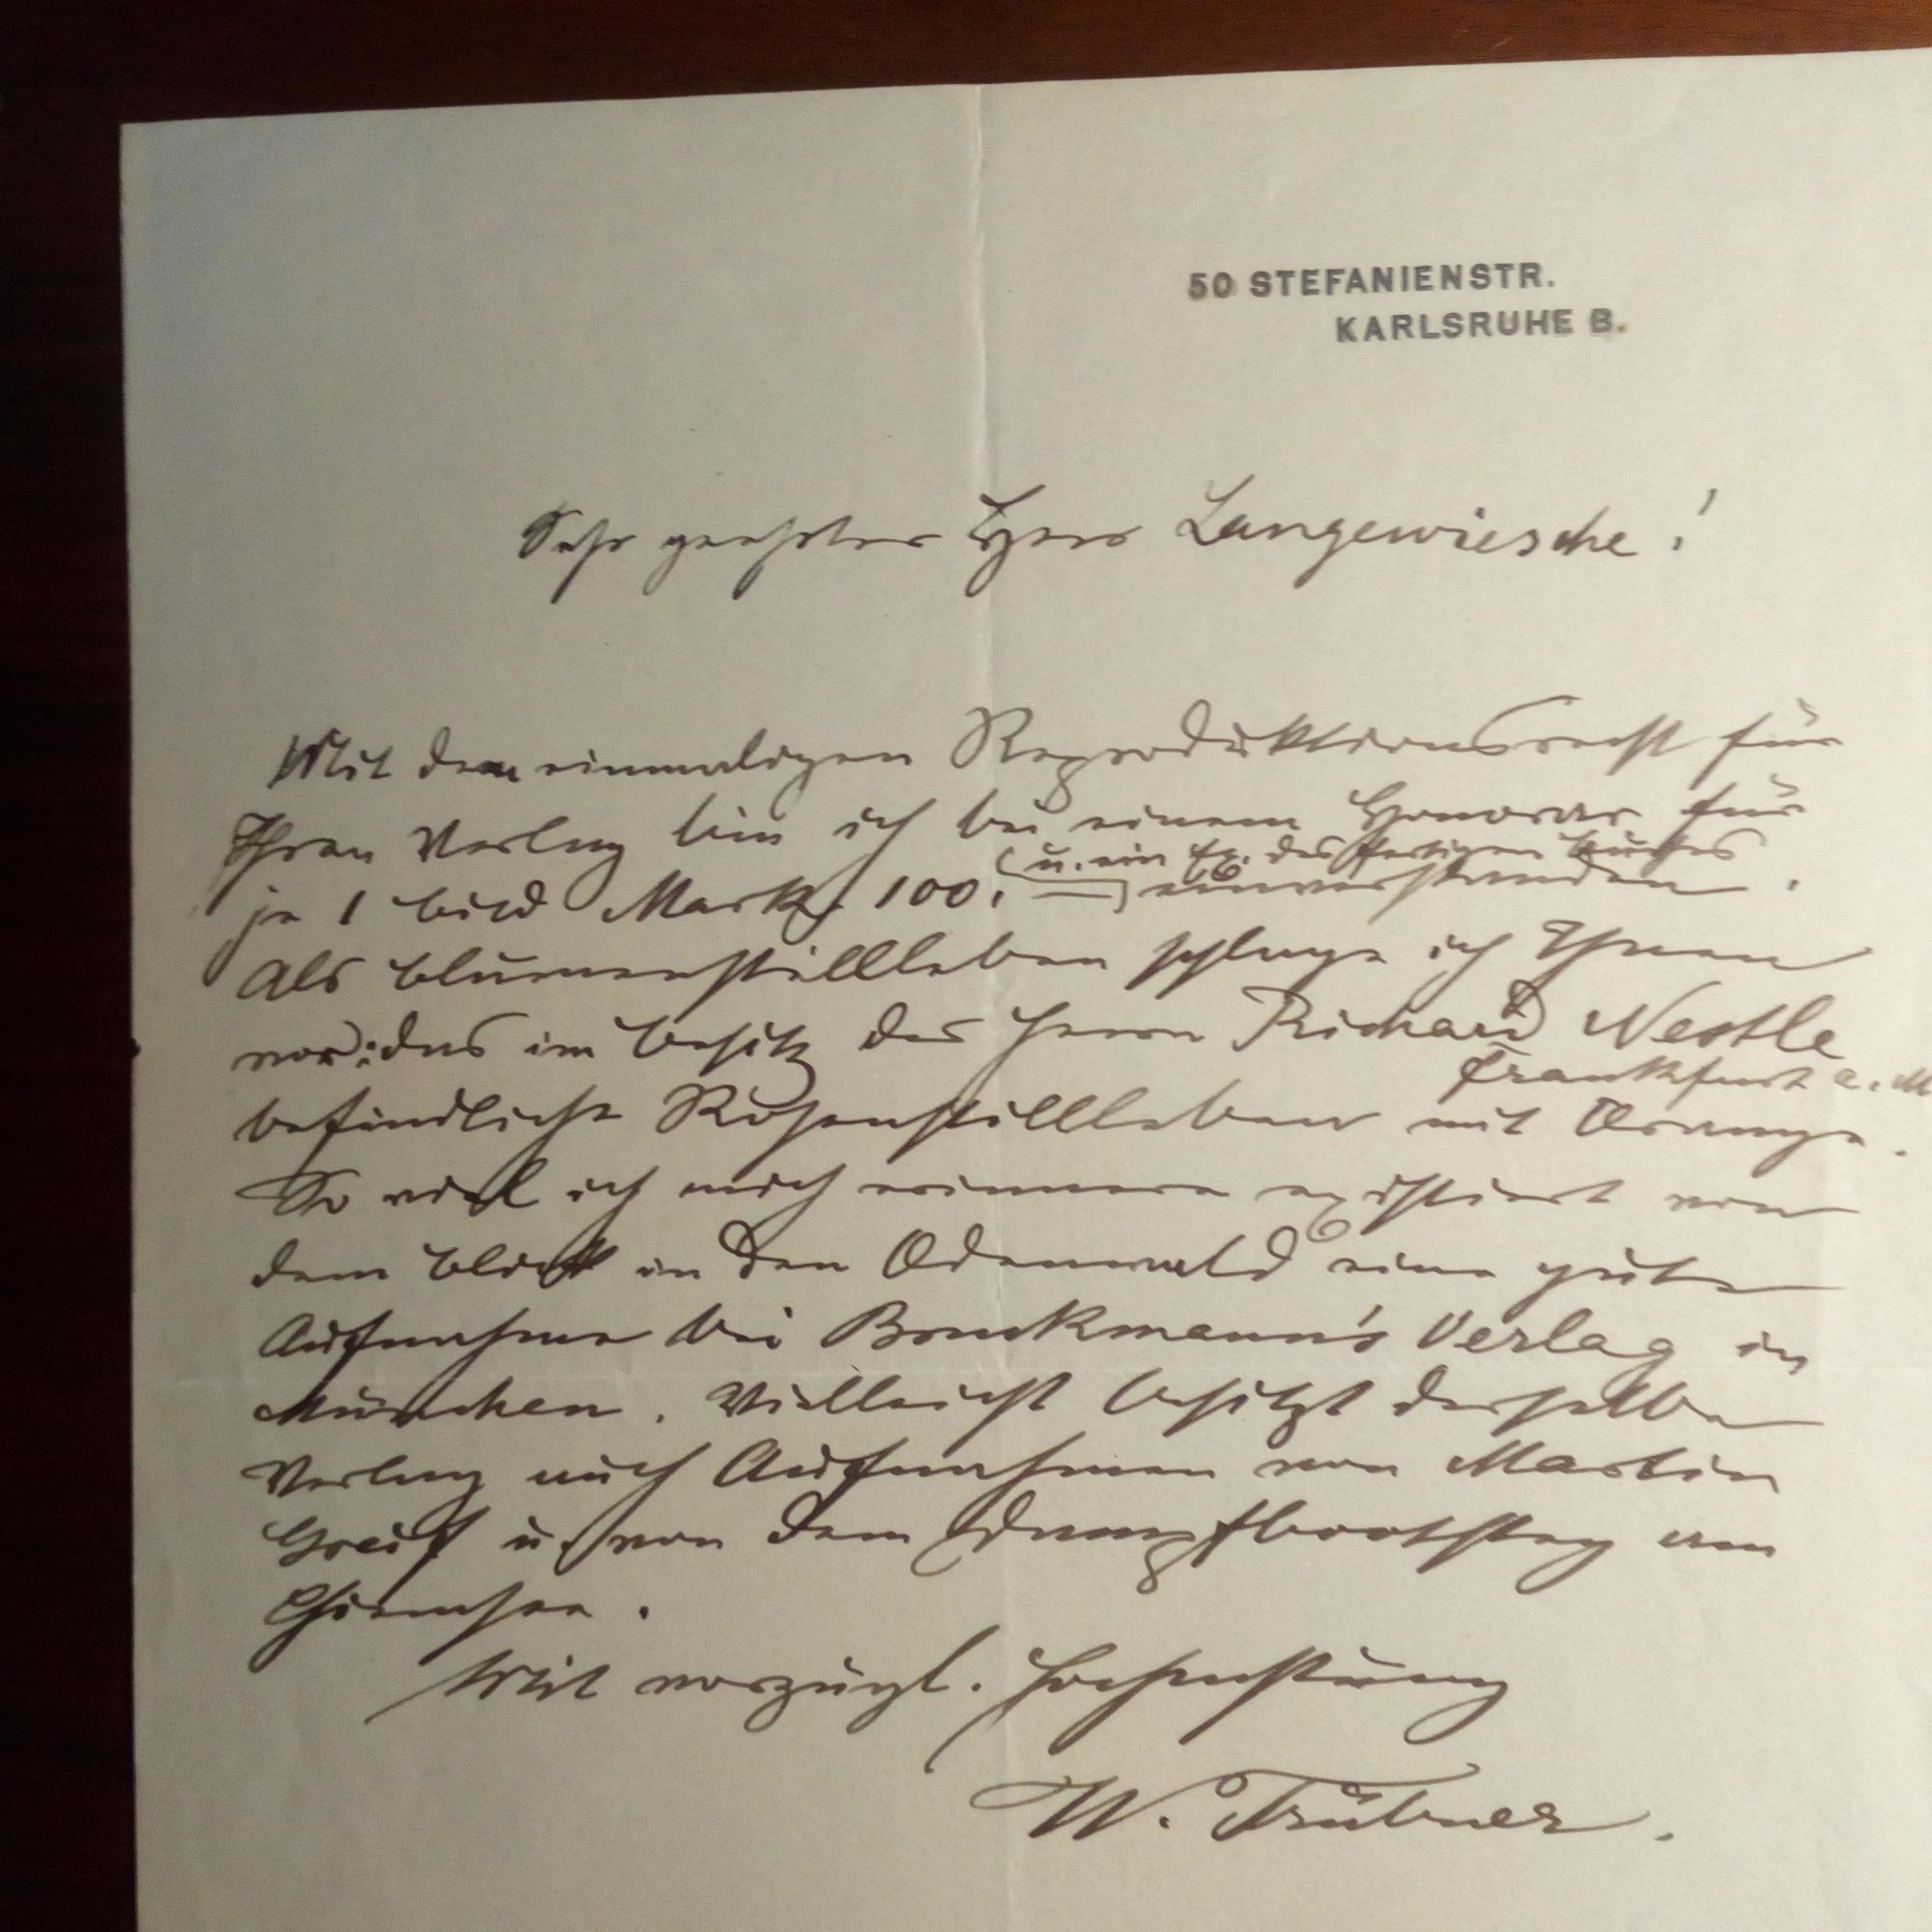 50 STEFANIENSTR.
KARLSRUHE B.
Sehr geehrter Herr Langewiesche!
Mit dem einmaligen Reproduktionsrecht für
Ihren Verlag bin ich bei einem Honorar für
(u. ein Ex. des fertigen Buches
je 1 Bild Mark 100. —) einverstanden.
Als Blumenstillleben schlage ich Ihnen
vor: das im Besitz des Herrn Richard Nestle
Frankfurt a. M
befindliche Rosenstillleben mit Orange.
So viel ich mich erinnere existiert von
dem Blick in den Odenwald eine gute
Aufnahme bei Bruckmann's Verlag in
München. Vielleicht besitzt derselbe
Verlag auch Aufnahmen von Martin
Greif u. von dem Dampfbootsteg am
Chiemsee.
Mit vorzügl. Hochachtung
W. Trübner.